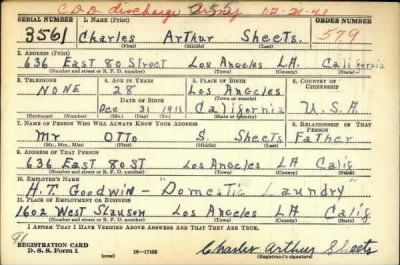 C.D.D. discharge Army 12-21-43
SERIAL NUMBER 1. NAME (Print) ORDER NUMBER
3561 Charles Arthur Sheets. 579
(First) (Middle) (Last)
2. ADDRESS (Print)
636 East 80 Street Los Angeles L.A. California
(Number and street or R. F. D. number) (Town) (County) (State)
3. TELEPHONE 4. AGE IN YEARS 5. PLACE OF BIRTH 6. COUNTRY OF CITIZENSHIP
NONE 28 Los Angeles
DATE OF BIRTH (Town or county)
Dec 31 1911 California U.S.A.
(Mo.) (Day) (Yr.) (State or country)
7. NAME OF PERSON WHO WILL ALWAYS KNOW YOUR ADDRESS 8. RELATIONSHIP OF THAT PERSON
Mr Otto S. Sheets Father
(Mr., Mrs., Miss) (First) (Middle) (Last)
9. ADDRESS OF THAT PERSON
636 East 80 ST Los Angeles LA Calif
(Number and street or R. F. D. number) (Town) (County) (State)
10. EMPLOYER'S NAME
H.T. Goodwin - "Domestic Laundry"
11. PLACE OF EMPLOYMENT OR BUSINESS
1602 West Slauson Los Angeles LA Calif
(Number and street or R. F. D. number) (Town) (County) (State)
I AFFIRM THAT I HAVE VERIFIED ABOVE ANSWERS AND THAT THEY ARE TRUE.
REGISTRATION CARD
D. S. S. Form 1 (over) 16-17105 Charles Arthur Sheets
(Registrant's signature)